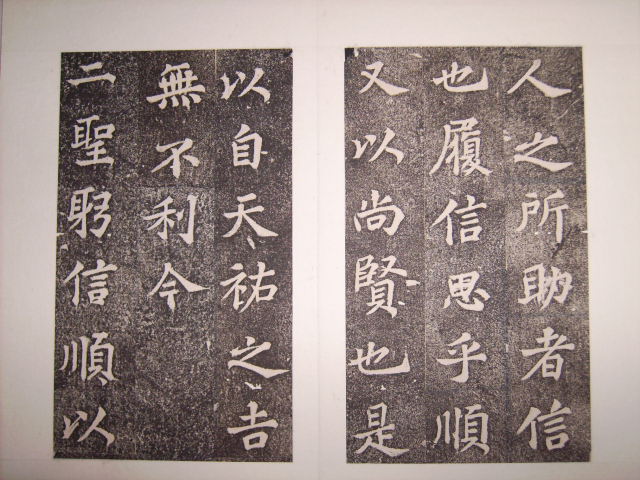 人之所助者信
也履信思乎順
又以尚賢也是
以自天祐之吉
無不利今
二聖躬信順以